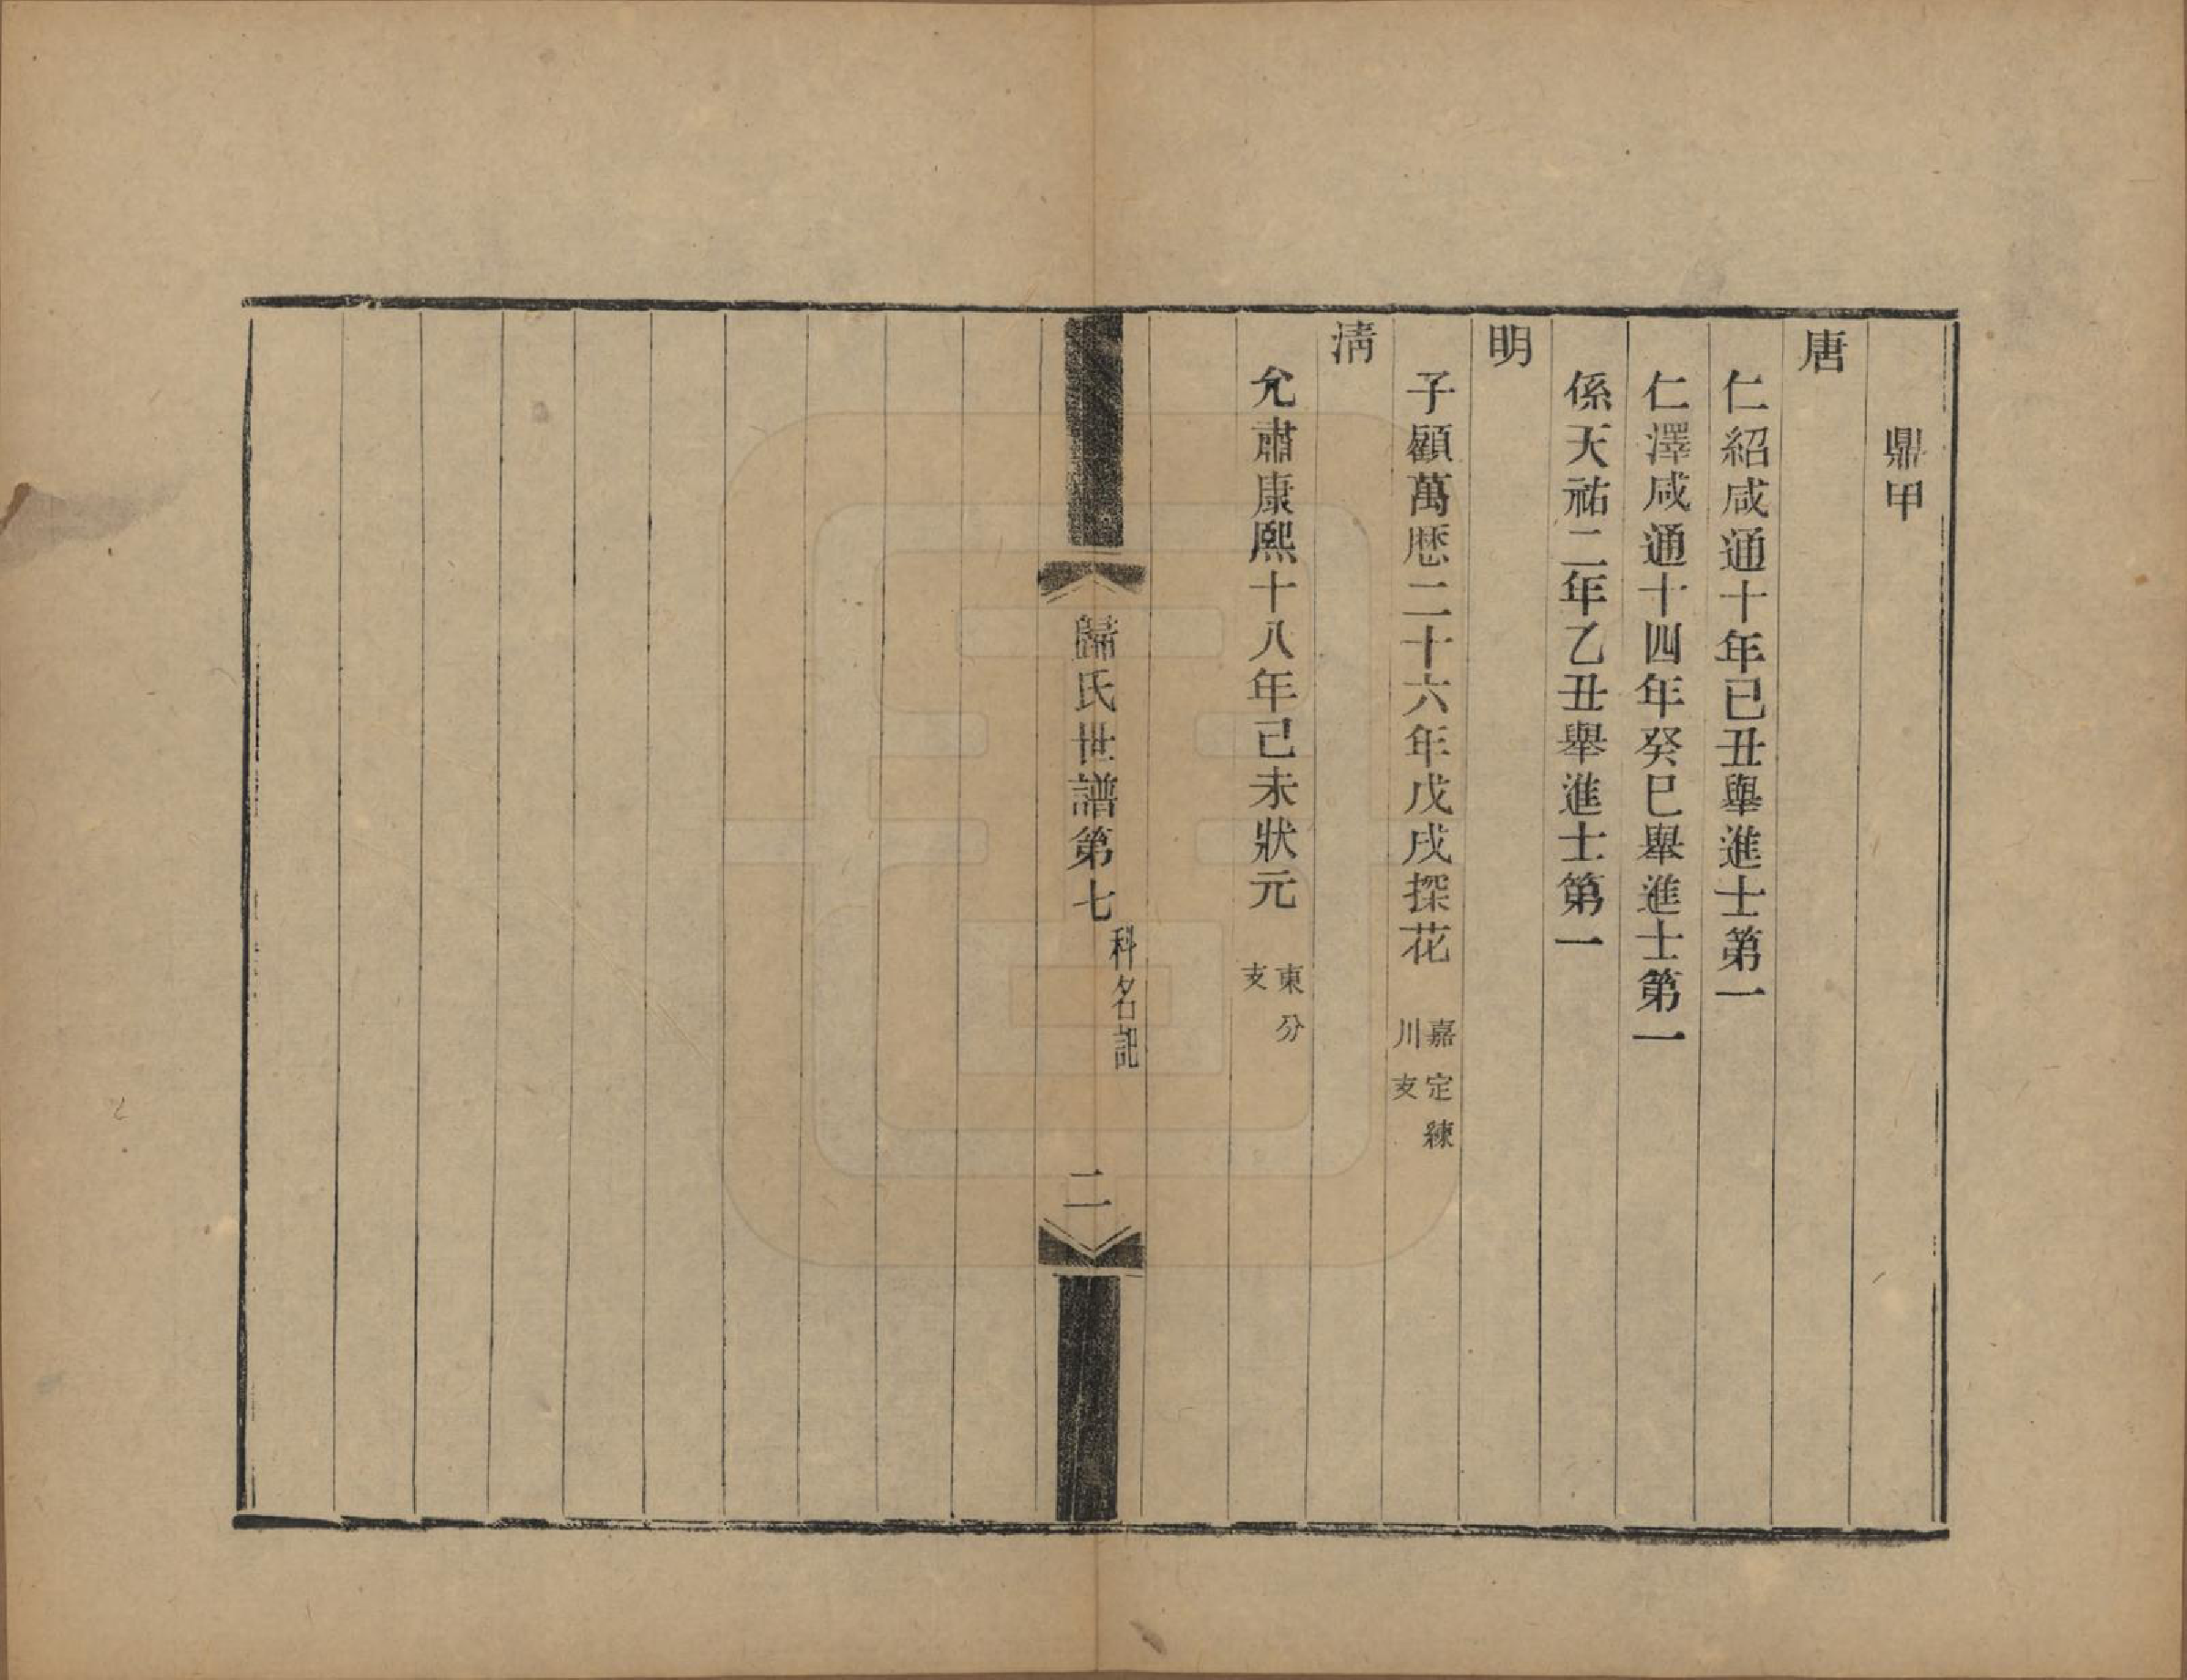 鼎甲
唐
仁紹咸通十年已丑舉進士第一
仁澤咸通十四年癸巳舉進士第一
係天祐二年乙丑舉進士第一
明
子顧萬厯二十六年戊戌探花 嘉定練川支
淸
允肅康熙十八年己未狀元 東分支
歸氏世譜第七 科名記 二